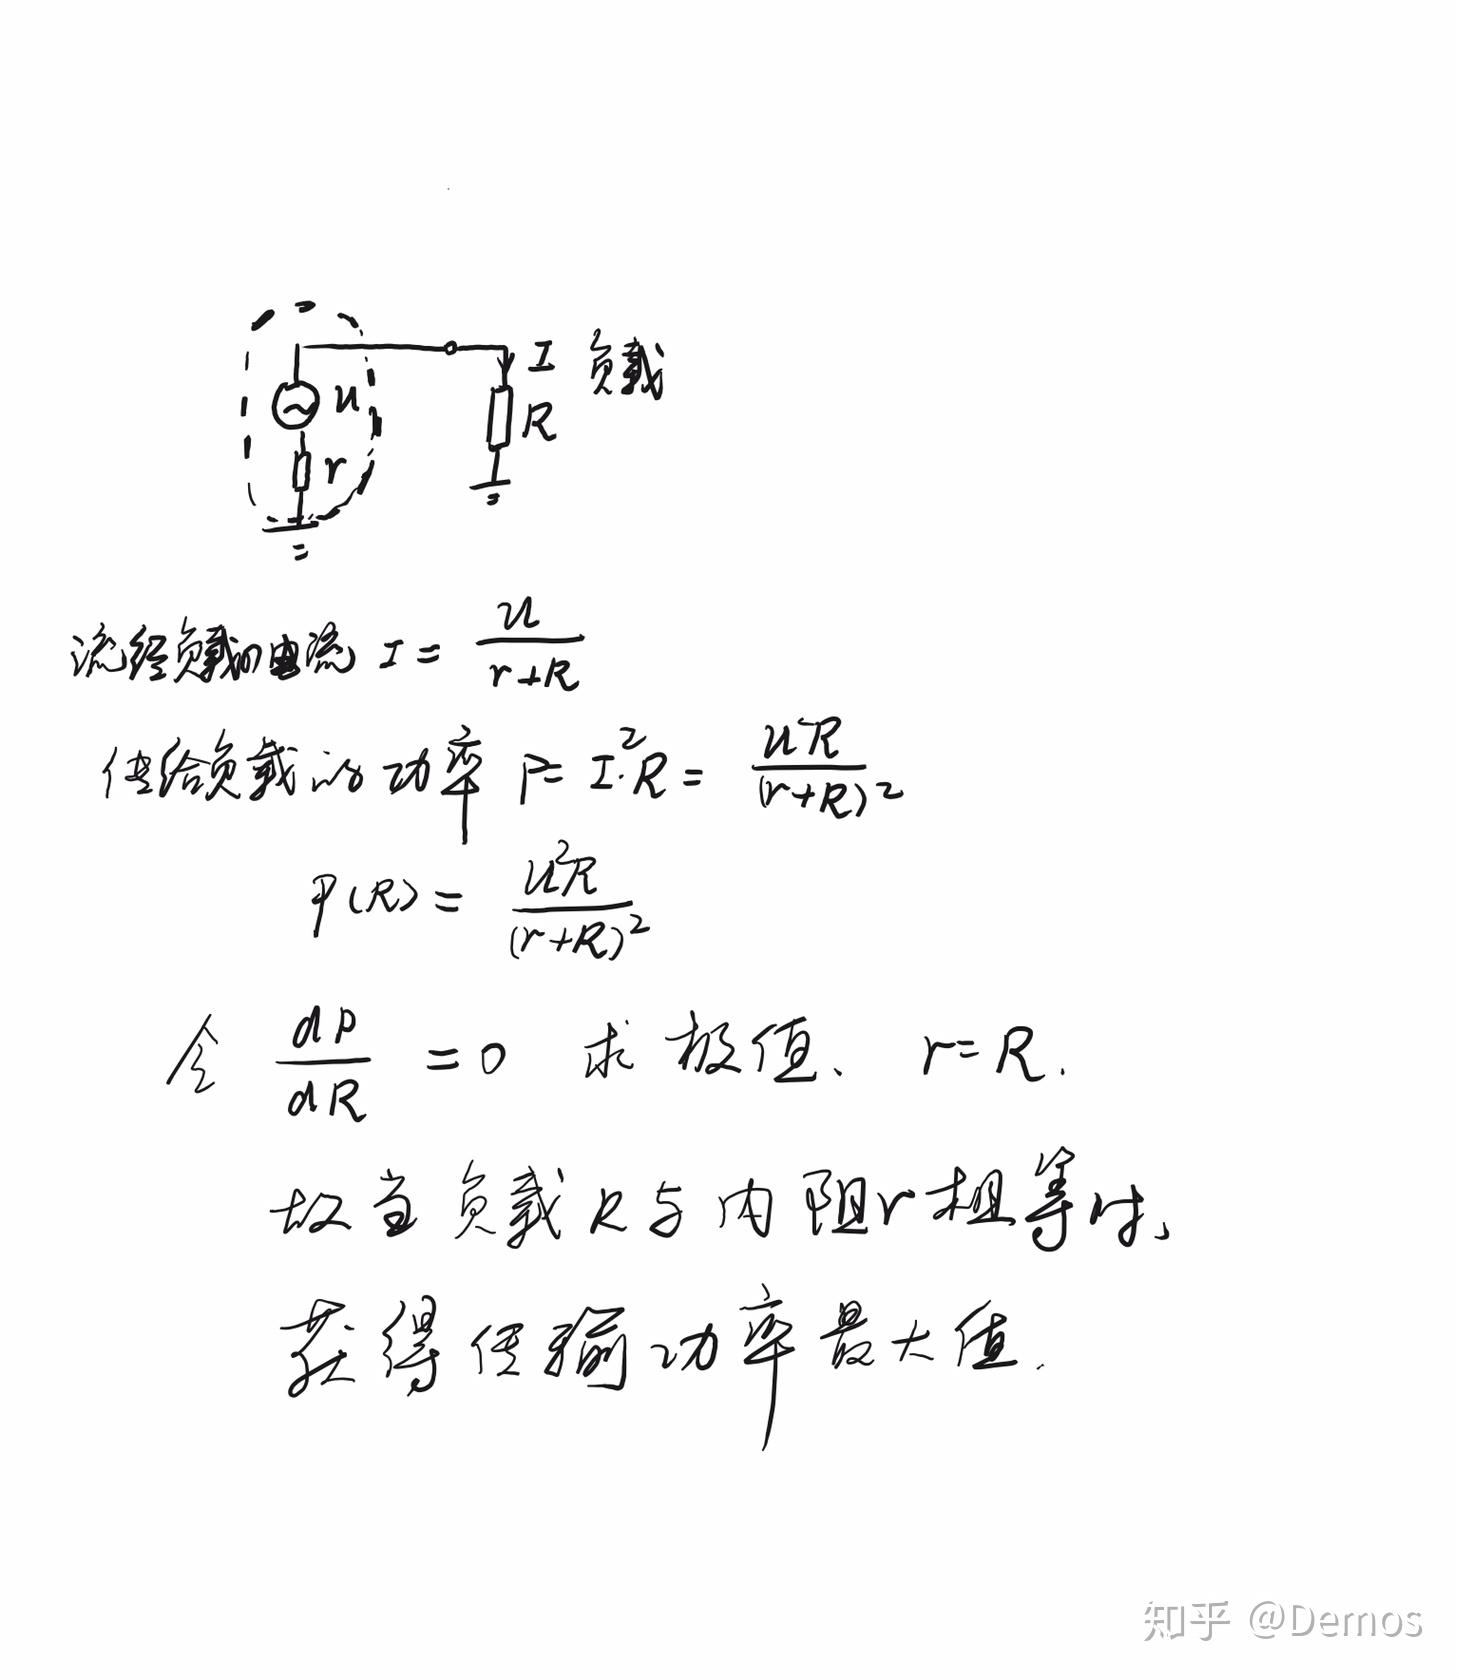 I 负载
u
R
r
流经负载的电流 I = u/(r+R)
传给负载的功率 P = I²·R = u²R/(r+R)²
P(R) = u²R/(r+R)²
令 dP/dR = 0 求极值、 r = R.
故当负载R与内阻r相等时、
获得传输功率最大值.
知乎 @Demos